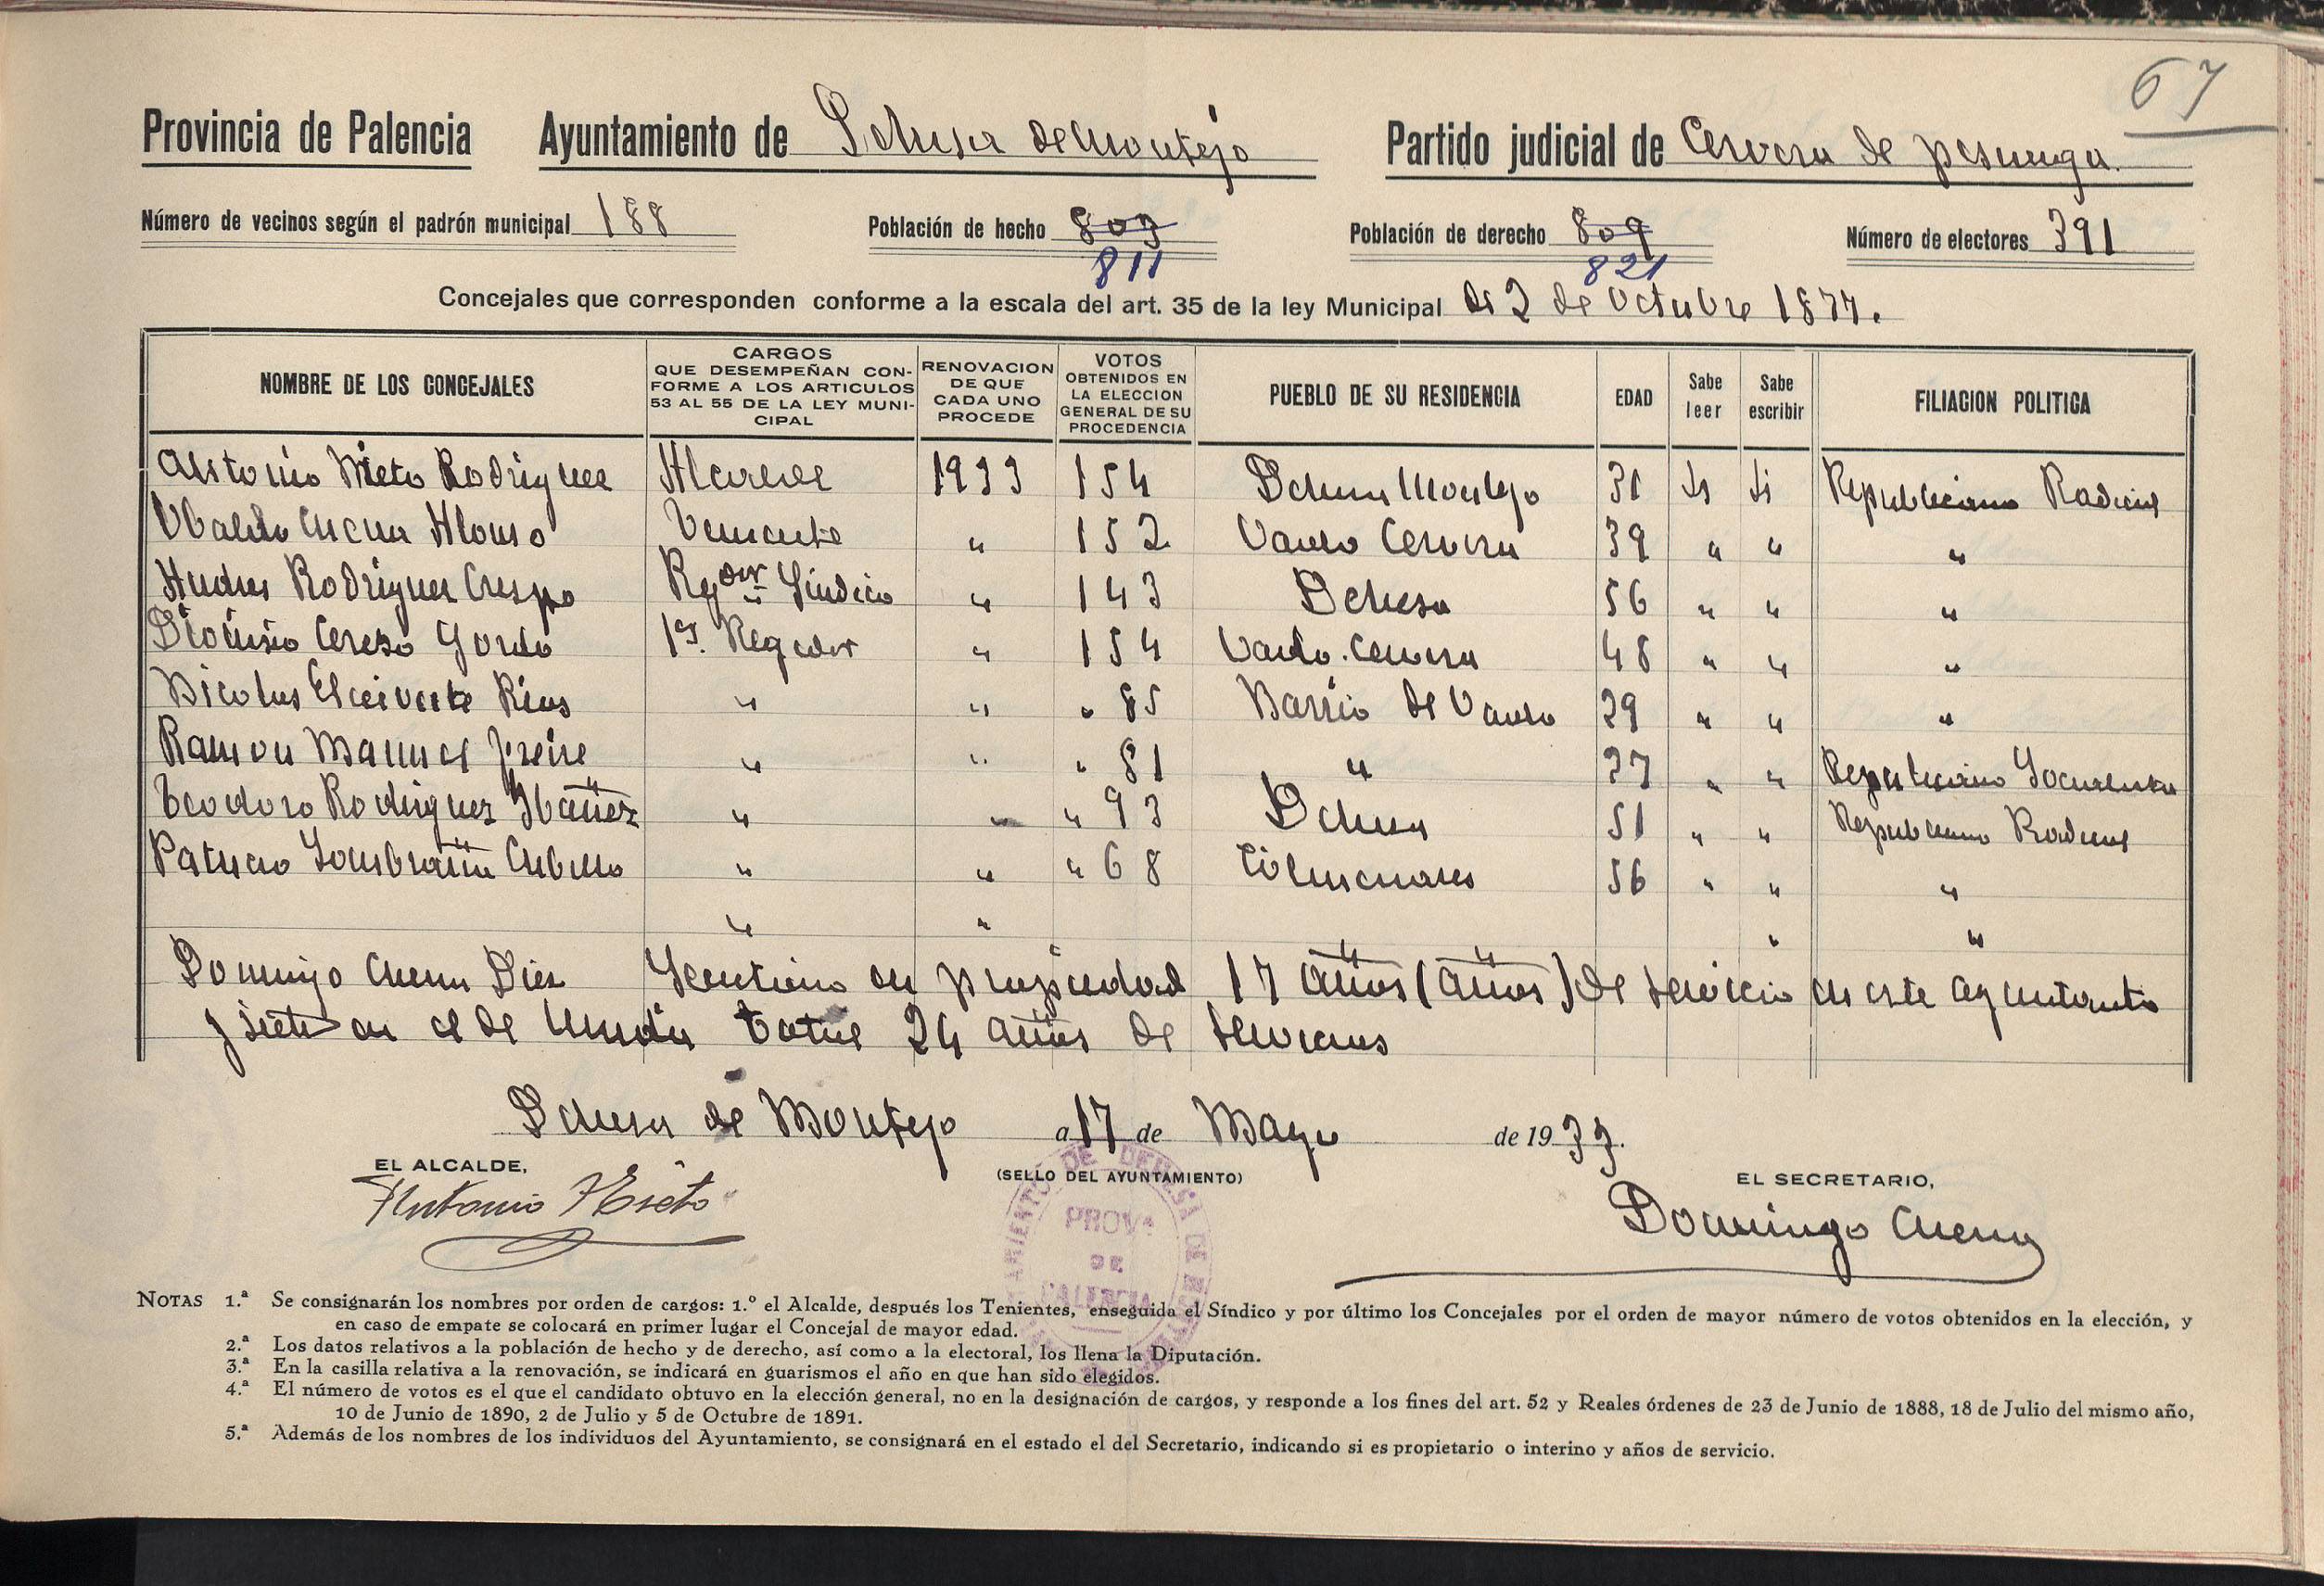 67
Provincia de Palencia Ayuntamiento de Dehesa de Montejo Partido judicial de Cervera de pisuerga.
Número de vecinos según el padrón municipal 188 Población de hecho 803 Población de derecho 809 Número de electores 391
811 821
Concejales que corresponden conforme a la escala del art. 35 de la ley Municipal de 2 de Octubre 1877.
NOMBRE DE LOS CONCEJALES CARGOS QUE DESEMPEÑAN CONFORME A LOS ARTICULOS 53 AL 55 DE LA LEY MUNICIPAL RENOVACION DE QUE CADA UNO PROCEDE VOTOS OBTENIDOS EN LA ELECCION GENERAL DE SU PROCEDENCIA PUEBLO DE SU RESIDENCIA EDAD Sabe leer Sabe escribir FILIACION POLITICA
Antonio Nieto Rodriguez Alcalde 1933 154 Dehesa Montejo 31 Si Si Republicano Radical
Ubaldo Cuena Alonso Teniente " 152 Vado Cervera 39 " " "
Andres Rodriguez Crespo Regdor Sindico " 143 Dehesa 56 " " "
Dionisio Cerezo Gordo 1er. Regidor " 154 Vado. Cervera 48 " " "
Nicolas Rios " " " 85 Barrio de Vado 29 " " "
Ramon Manuel Freire " " " 81 " 37 " " Republicano Socialista
Teodoro Rodriguez Ibañez " " " 93 Dehesa 51 " " Republicano Radical
Patricio Sombraña Cubillo " " " 68 Colmenares 56 " " "
" " " "
Domingo Cuena Diez Secretario en propiedad 17 años (años) de servicio en este ayuntamto
y siete en el de total 24 años de servicios
Dehesa de Montejo a 17 de Mayo de 1933.
EL ALCALDE, (SELLO DEL AYUNTAMIENTO) EL SECRETARIO,
Antonio Nieto Domingo Cuena
PROVA
DE
PALENCIA
NOTAS 1.ª Se consignarán los nombres por orden de cargos: 1.º el Alcalde, después los Tenientes, enseguida el Síndico y por último los Concejales por el orden de mayor número de votos obtenidos en la elección, y
en caso de empate se colocará en primer lugar el Concejal de mayor edad.
2.ª Los datos relativos a la población de hecho y de derecho, así como a la electoral, los llena la Diputación.
3.ª En la casilla relativa a la renovación, se indicará en guarismos el año en que han sido elegidos.
4.ª El número de votos es el que el candidato obtuvo en la elección general, no en la designación de cargos, y responde a los fines del art. 52 y Reales órdenes de 23 de Junio de 1888, 18 de Julio del mismo año,
10 de Junio de 1890, 2 de Julio y 5 de Octubre de 1891.
5.ª Además de los nombres de los individuos del Ayuntamiento, se consignará en el estado el del Secretario, indicando si es propietario o interino y años de servicio.